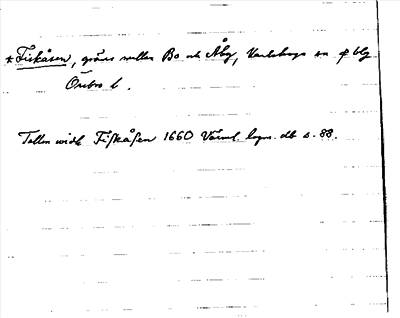 * Fiskåsen, gräns mellan Bo och Åby, Karlskoga sn o blg
Örebro l.
Tallen widh Fiskåsen 1660 Värml. lagm. db s. 88.